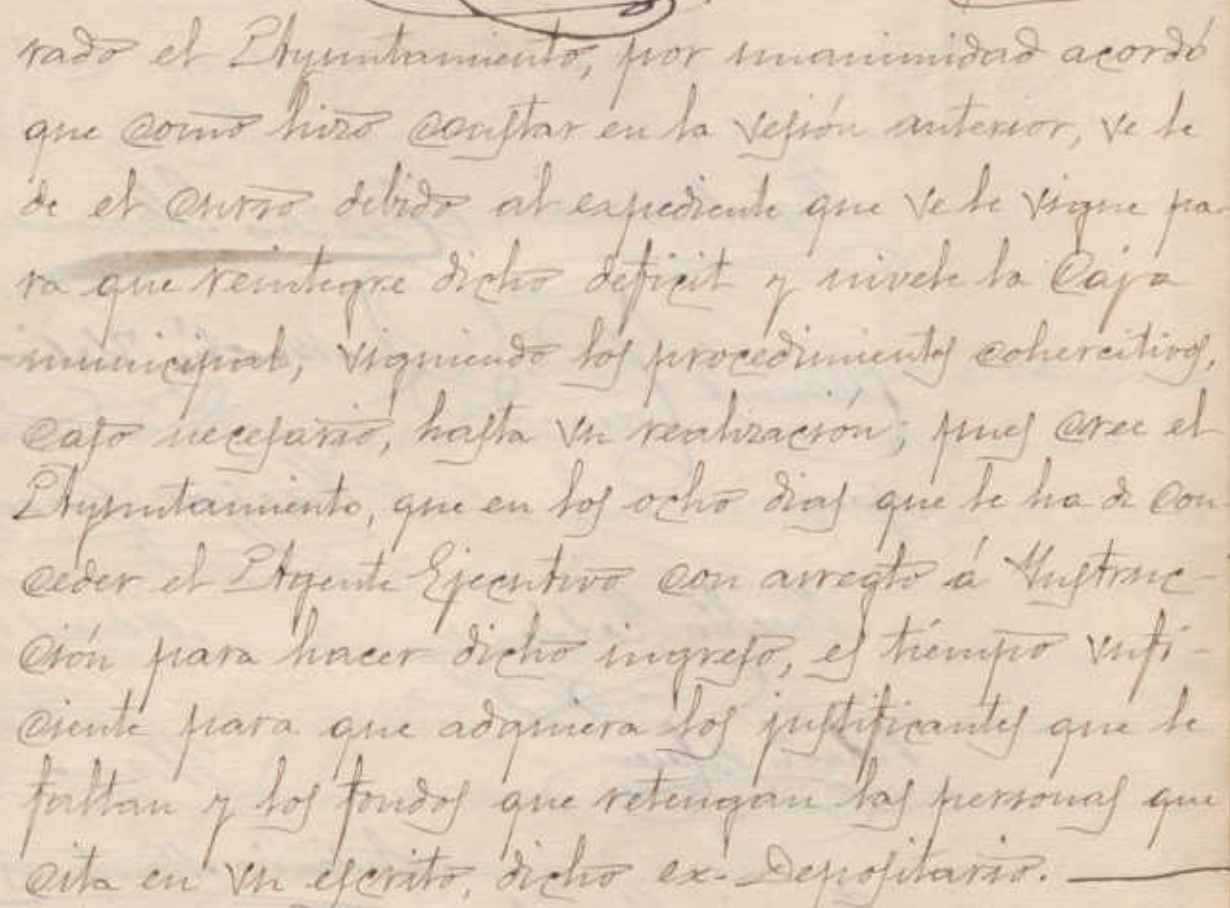 rado el Ayuntamiento, por unanimidad acordó
que como hizo constar en la sesión anterior, se le
de el curso debido al expediente que se le sigue pa
ra que reintegre dicho deficit y nivele la Caja
municipal, siguiendo los procedimientos cohercitivos,
caso necesario, hasta su realización; pues cree el
Ayuntamiento, que en los ocho dias que le ha de con
ceder el Agente Ejecutivo con arreglo á Instruc-
ción para hacer dicho ingreso, es tiempo sufi-
ciente para que adquiera los justificantes que le
faltan y los fondos que retengan las personas que
cita en su escrito, dicho ex-Depositario.